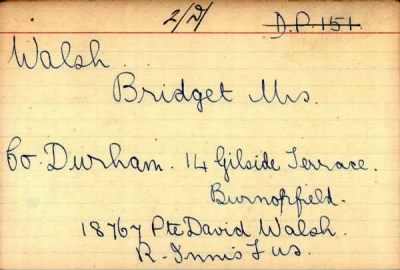 2/D/ D.P. 151.
Walsh.
Bridget Mrs.
Co. Durham. 14 Gilside Terrace.
Burnopfield.
18767 Pte David Walsh.
R. Innis Fus.